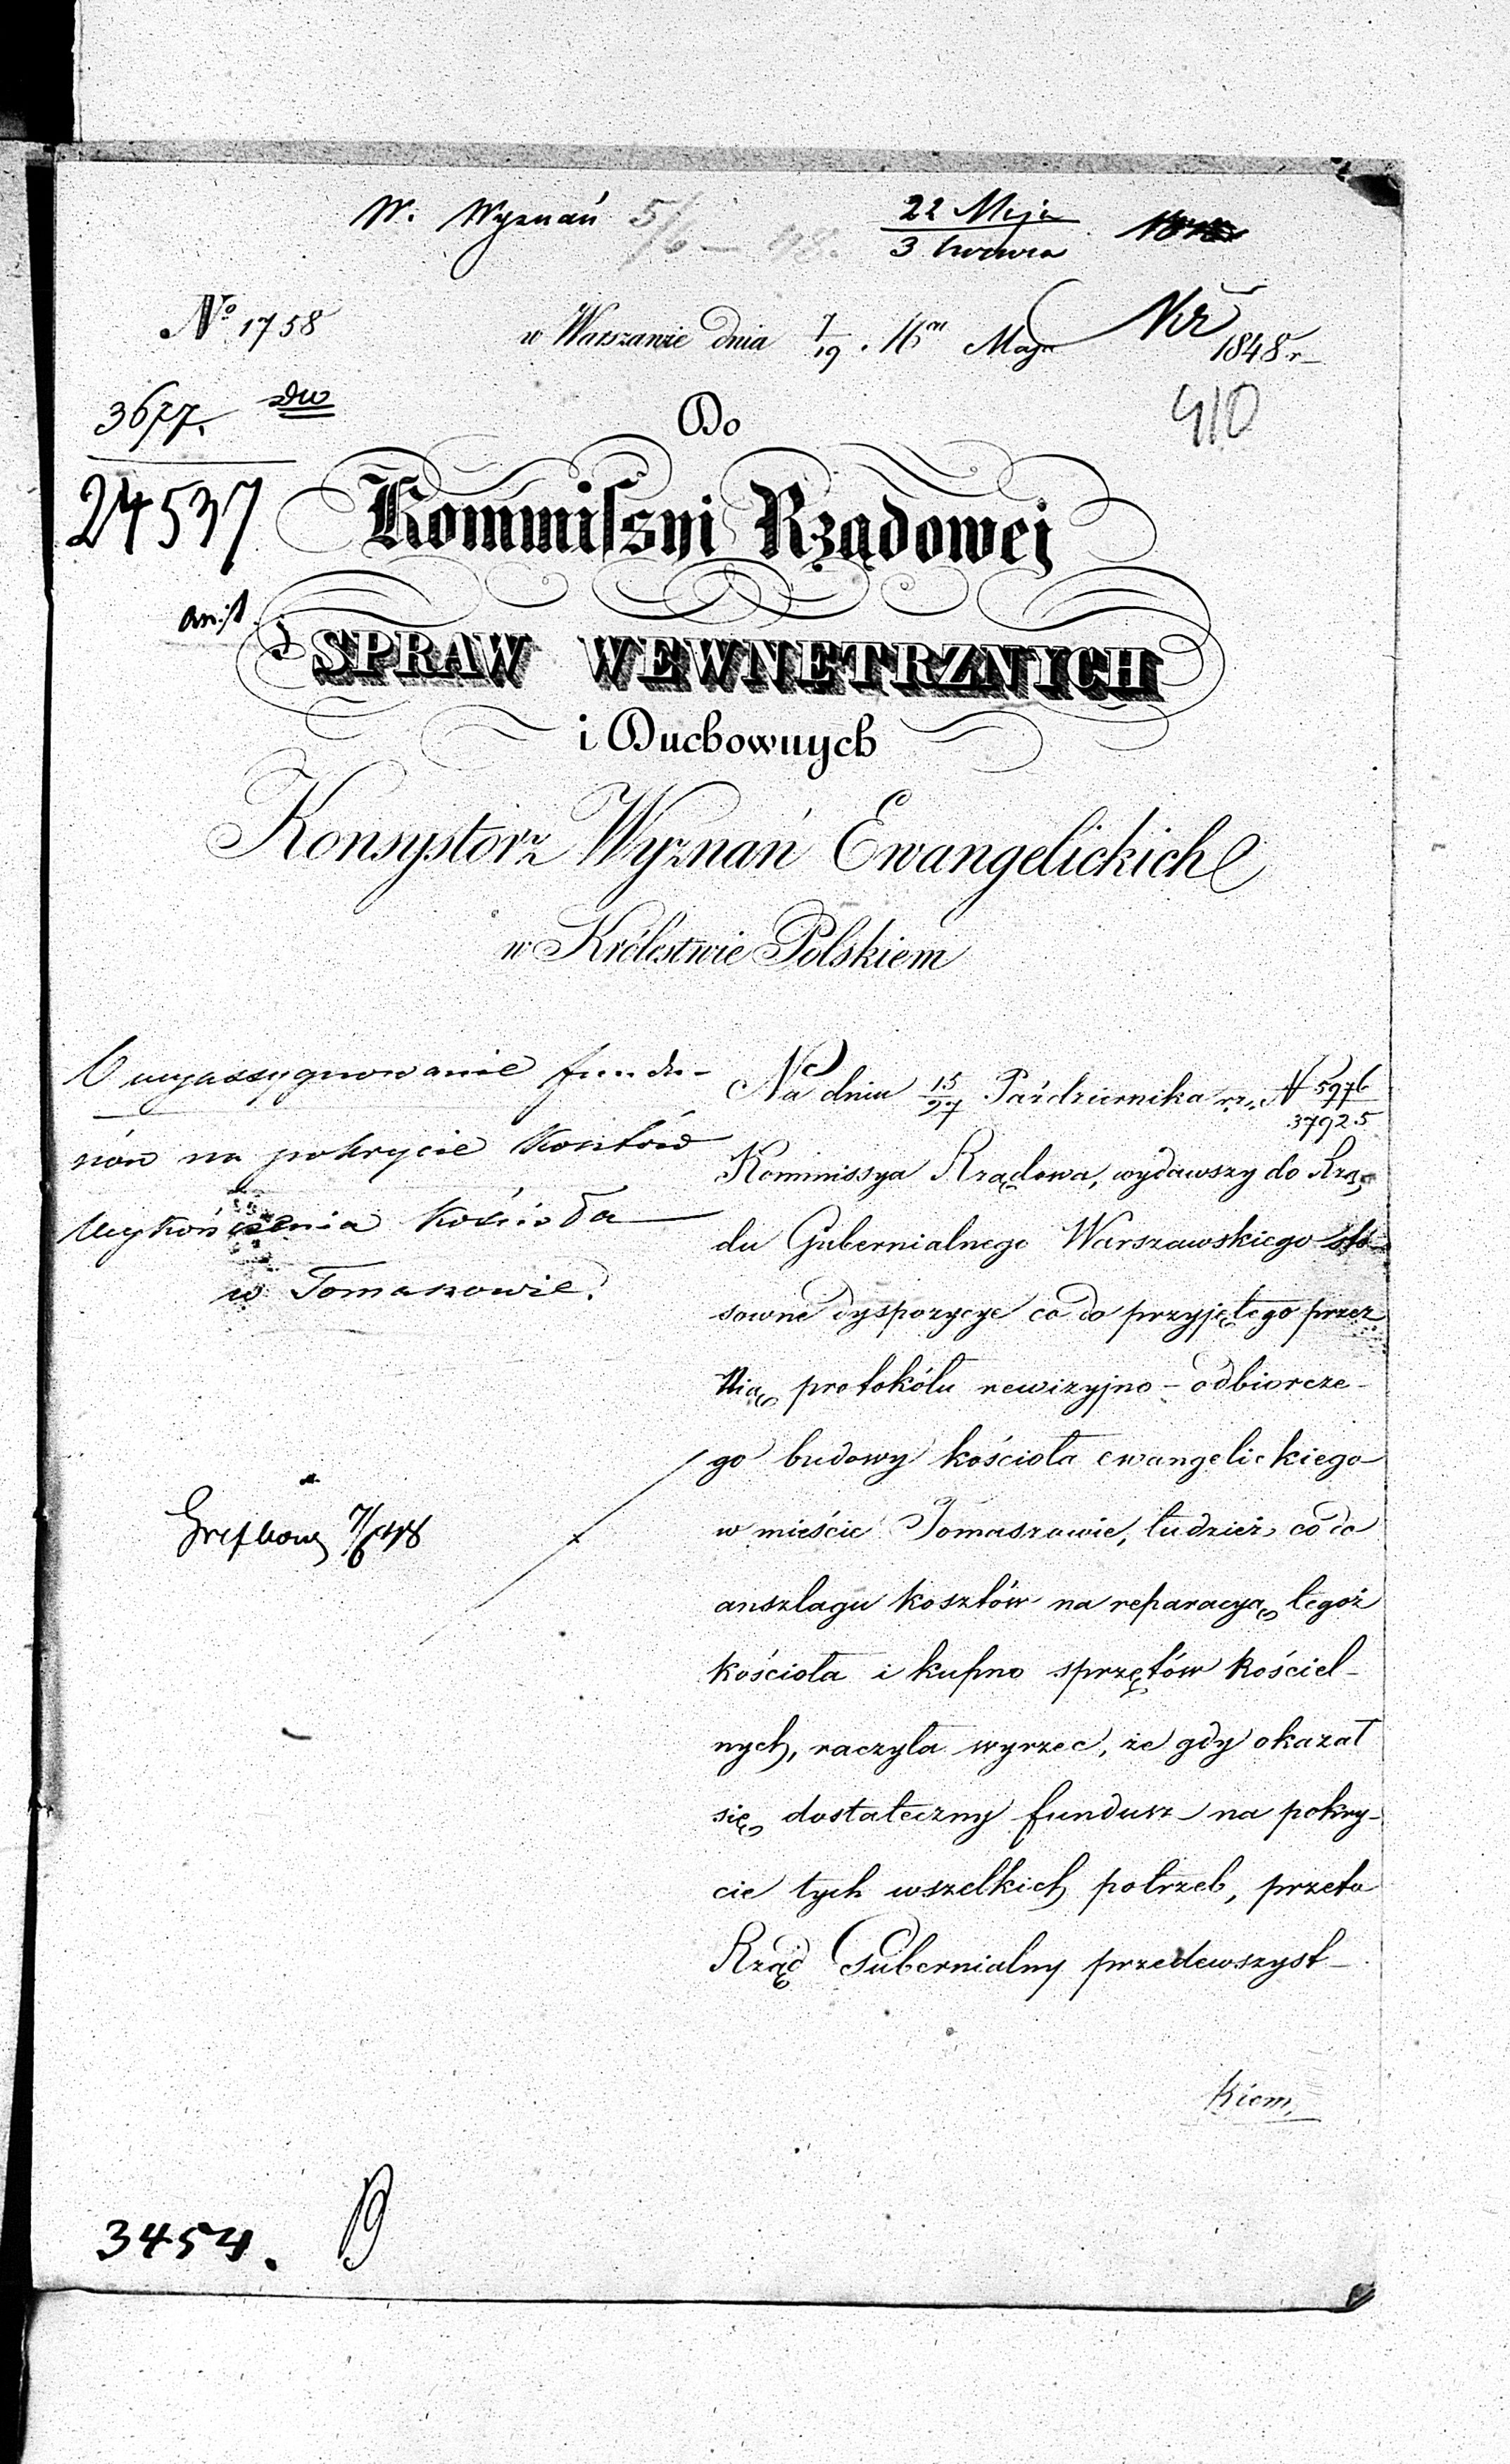 W. Wyznań 5/6 – 48.
22 Maja
3 Czerwca
No 1758
w Warszawie dnia 7/19 Maja 1848 r
3677.
24537
410
Do
Kommissyi Rządowej
SPRAW WEWNETRZNYCH
i Duchownych
Konsystorz Wyznań Ewangelickich
w Królestwie Polskiem
O wyassygnowanie fundu-
szów na pokrycie kosztów
wykończenia kościoła
w Tomaszowie.
Na dniu 15/27 Października r.z. N 5976/37925
Kommissya Rządowa, wydawszy do Rzą-
du Gubernialnego Warszawskiego sto-
sowne dyspozycye co do przyjętego przez
Nią protokółu rewizyjno-odbiorcze-
go budowy kościoła ewangelickiego
w mieście Tomaszowie, tudzież co do
anszlagu kosztów na reparacyą tegoż
kościoła i kupno sprzętów kościel-
nych, raczyła wyrzec, że gdy okazał
się dostateczny fundusz na pokry-
cie tych wszelkich potrzeb, przeto
Rząd Gubernialny przedewszyst-
kiem,
3454.